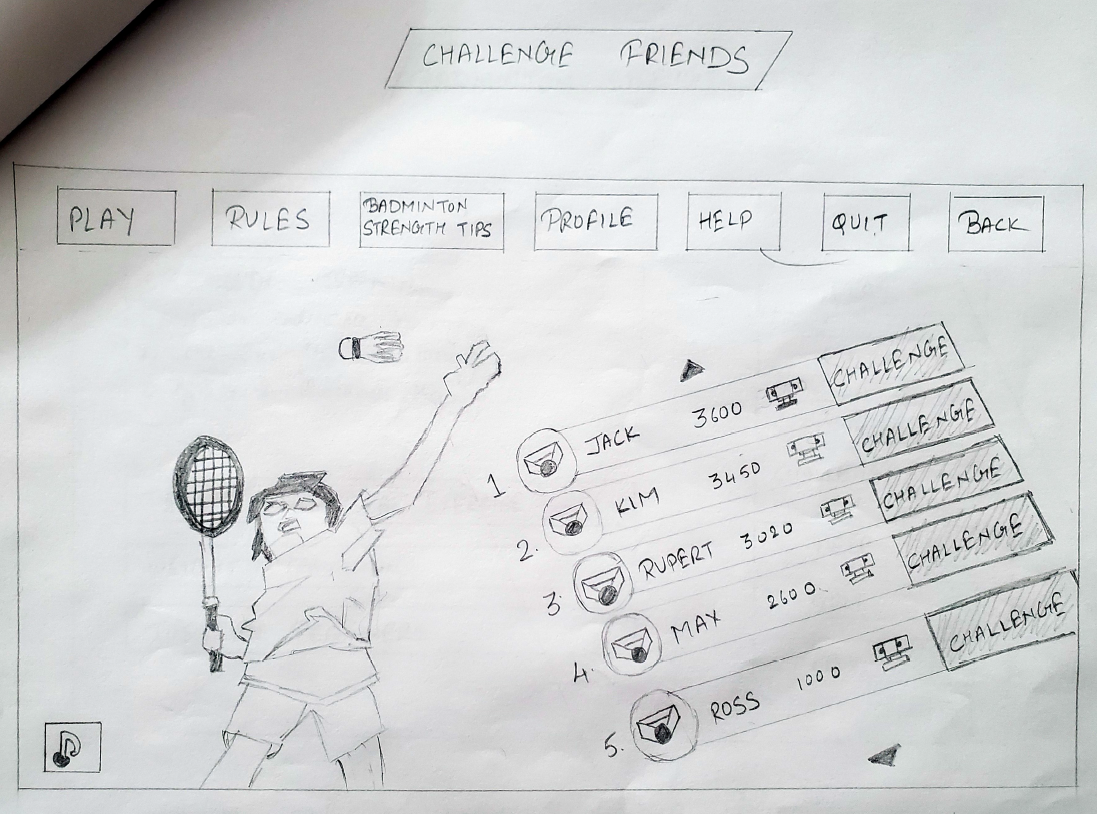 CHALLENGE FRIENDS
PLAY
RULES
BADMINTON
STRENGTH TIPS
PROFILE
HELP
QUIT
BACK
1 JACK 3600 CHALLENGE
2. KIM 3450 CHALLENGE
3. RUPERT 3020 CHALLENGE
4. MAX 2600 CHALLENGE
5. ROSS 1000 CHALLENGE